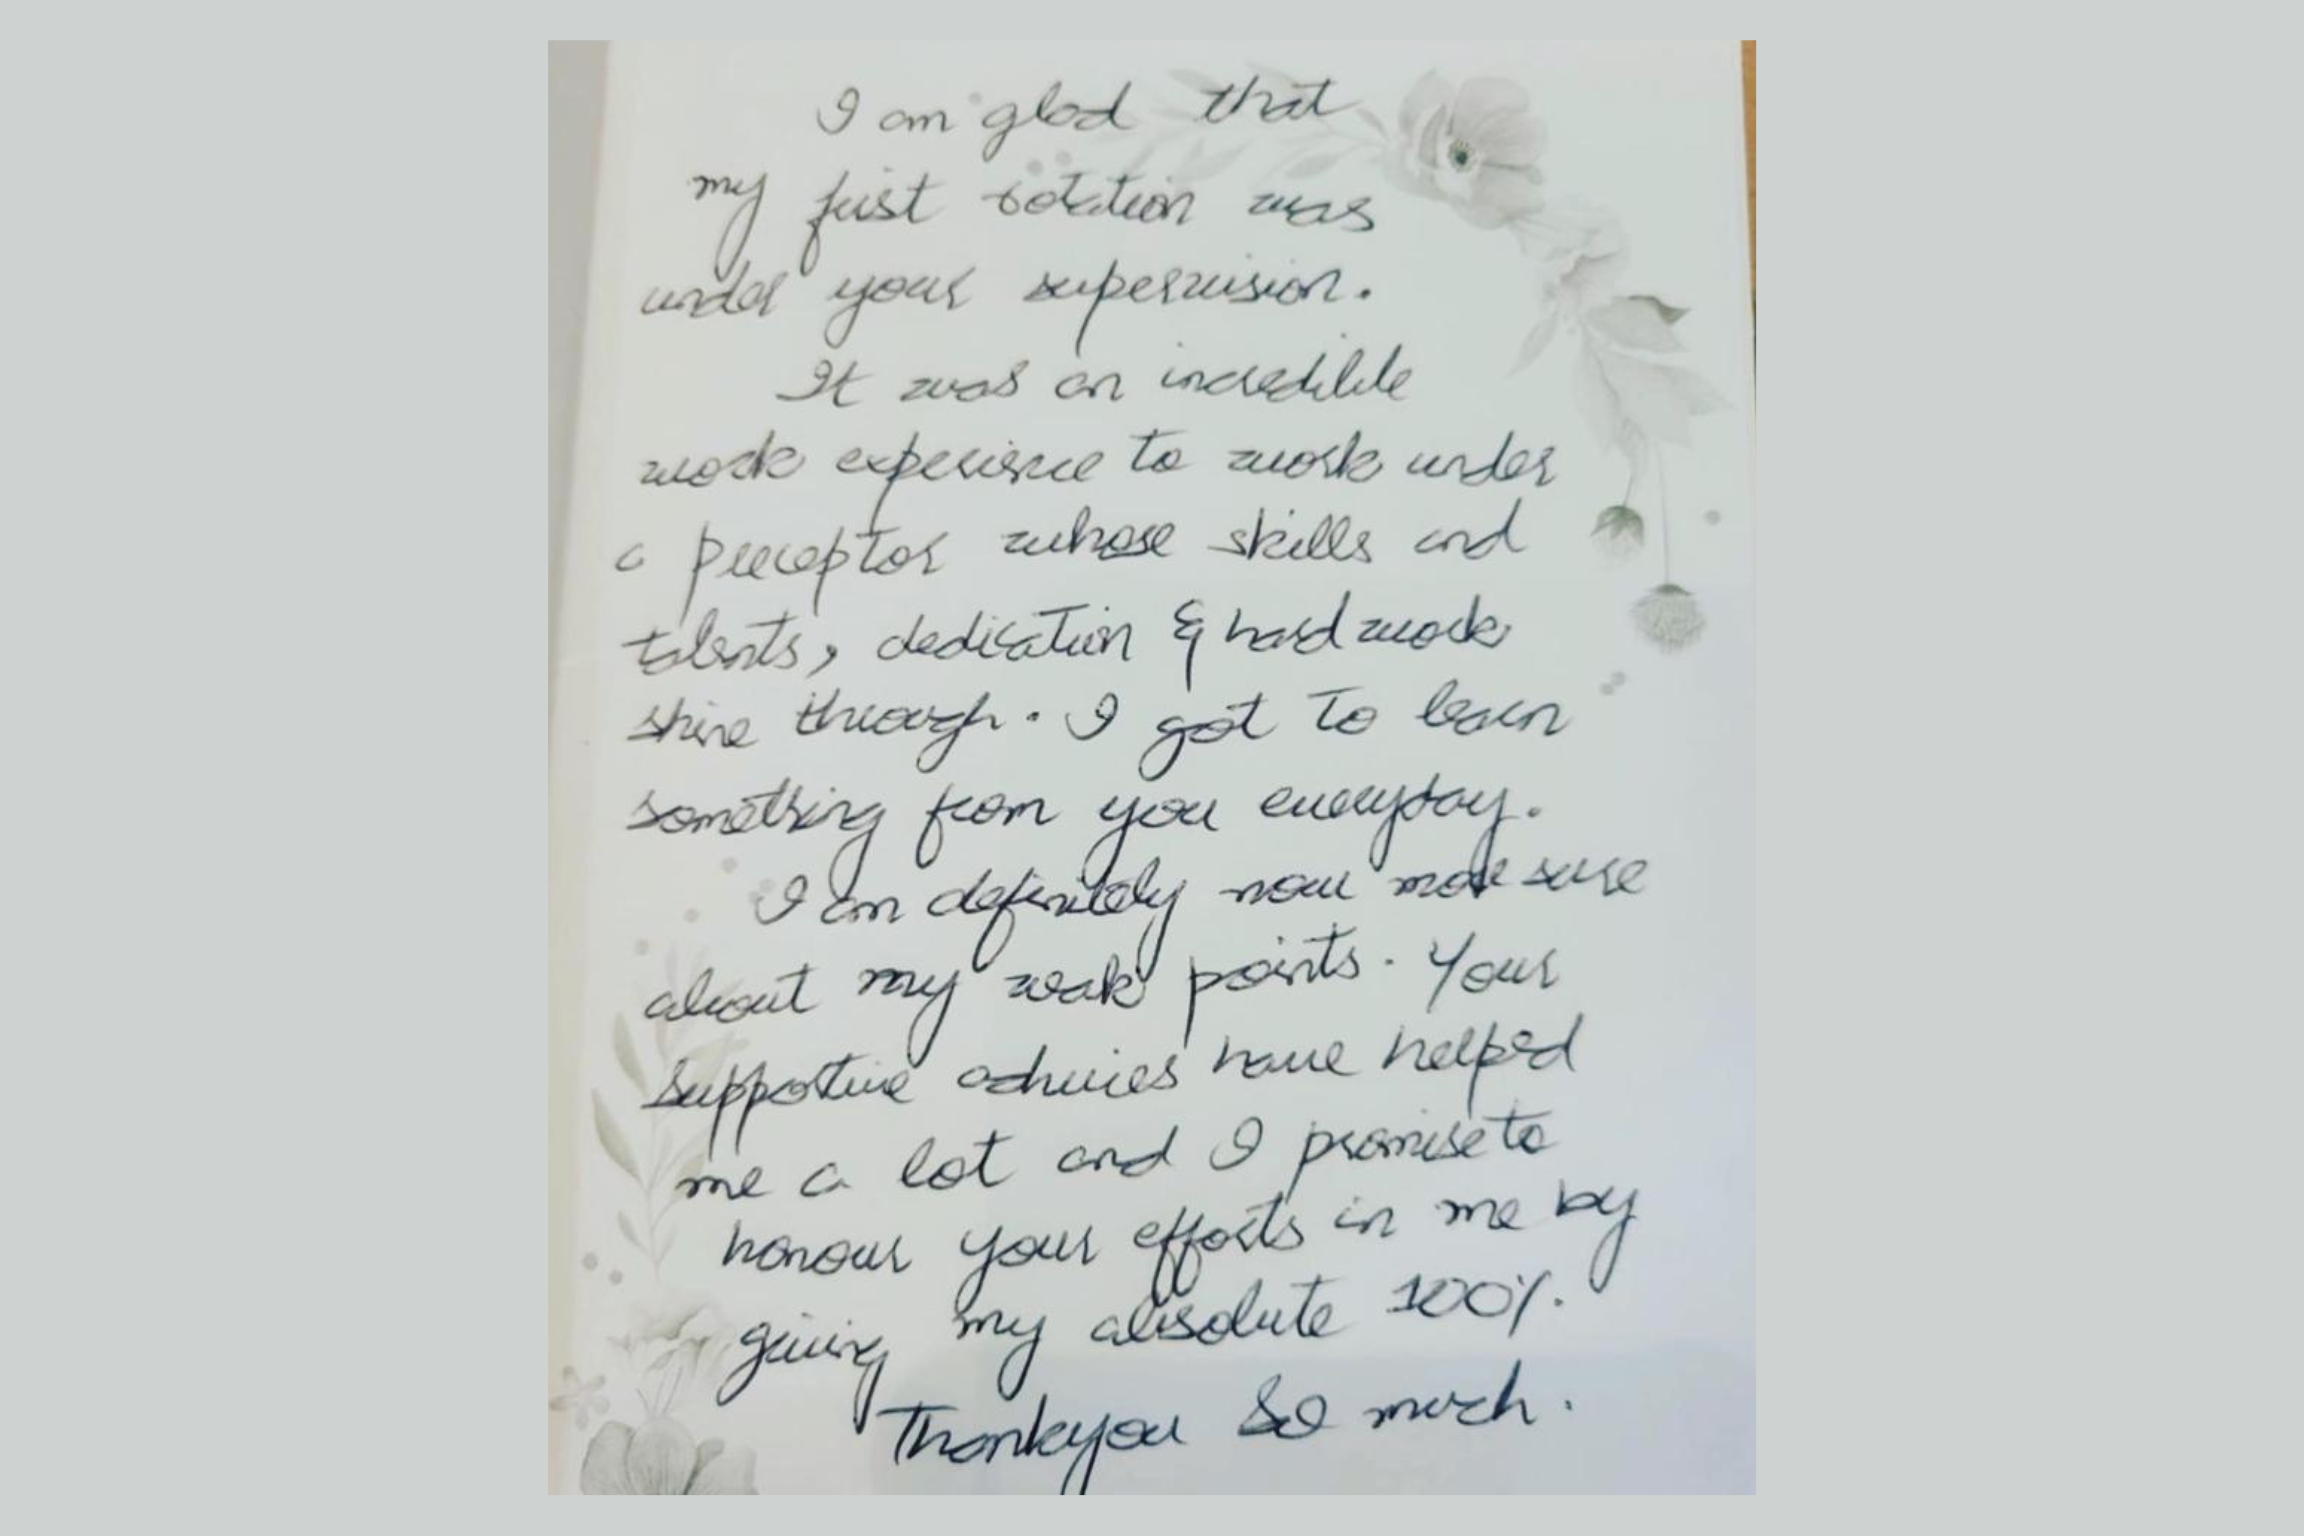 I am glad that
my first rotation was
under your supervision.
It was an incredible
work experience to work under
a preceptor whose skills and
talents, dedication & hard work
shine through. I got to learn
something from you everyday.
I am definitely now more sure
about my weak points. Your
supportive advices have helped
me a lot and I promise to
honour your efforts in me by
giving my absolute 100%.
Thankyou So much.